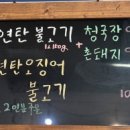 연탄 불고기
+ 청국장
촌돼지
연탄오징어
불고기
2인분 주문